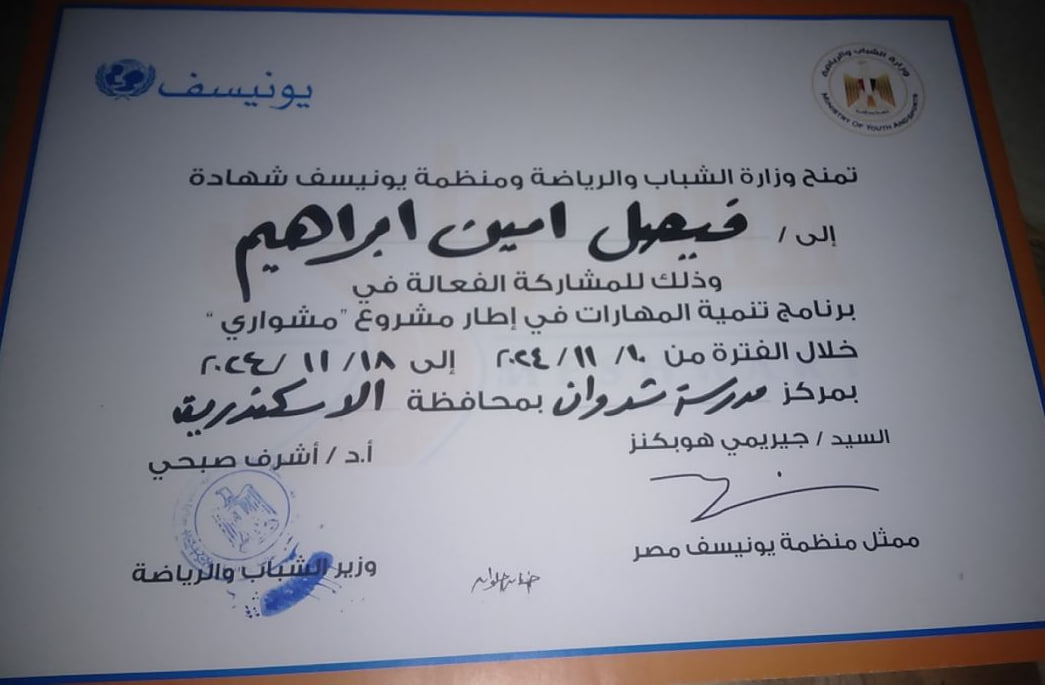 يونيسف
وزارة الشباب والرياضة
MINISTRY OF YOUTH AND SPORTS
تمنح وزارة الشباب والرياضة ومنظمة يونيسف شهادة
إلى / فيصل امين ابراهيم
وذلك للمشاركة الفعالة في
برنامج تنمية المهارات في إطار مشروع "مشواري"
خلال الفترة من ١٠/ ١١/ ٢٠٢٤ إلى ١٨/ ١١ /٢٠٢٤
بمركز مدرسة شدوان بمحافظة الاسكندرية
السيد / جيريمي هوبكنز
أ.د / أشرف صبحي
ممثل منظمة يونيسف مصر
وزير الشباب والرياضة